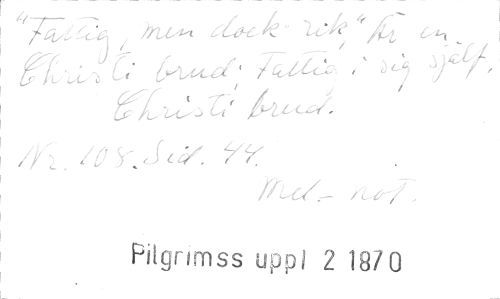 "Fattig, men dock rik," Är en
Christi brud; Fattig i sig själf,
Christi brud.
Nr. 108. Sid. 44.
Mel. - not.
Pilgrimss uppl 2 1870